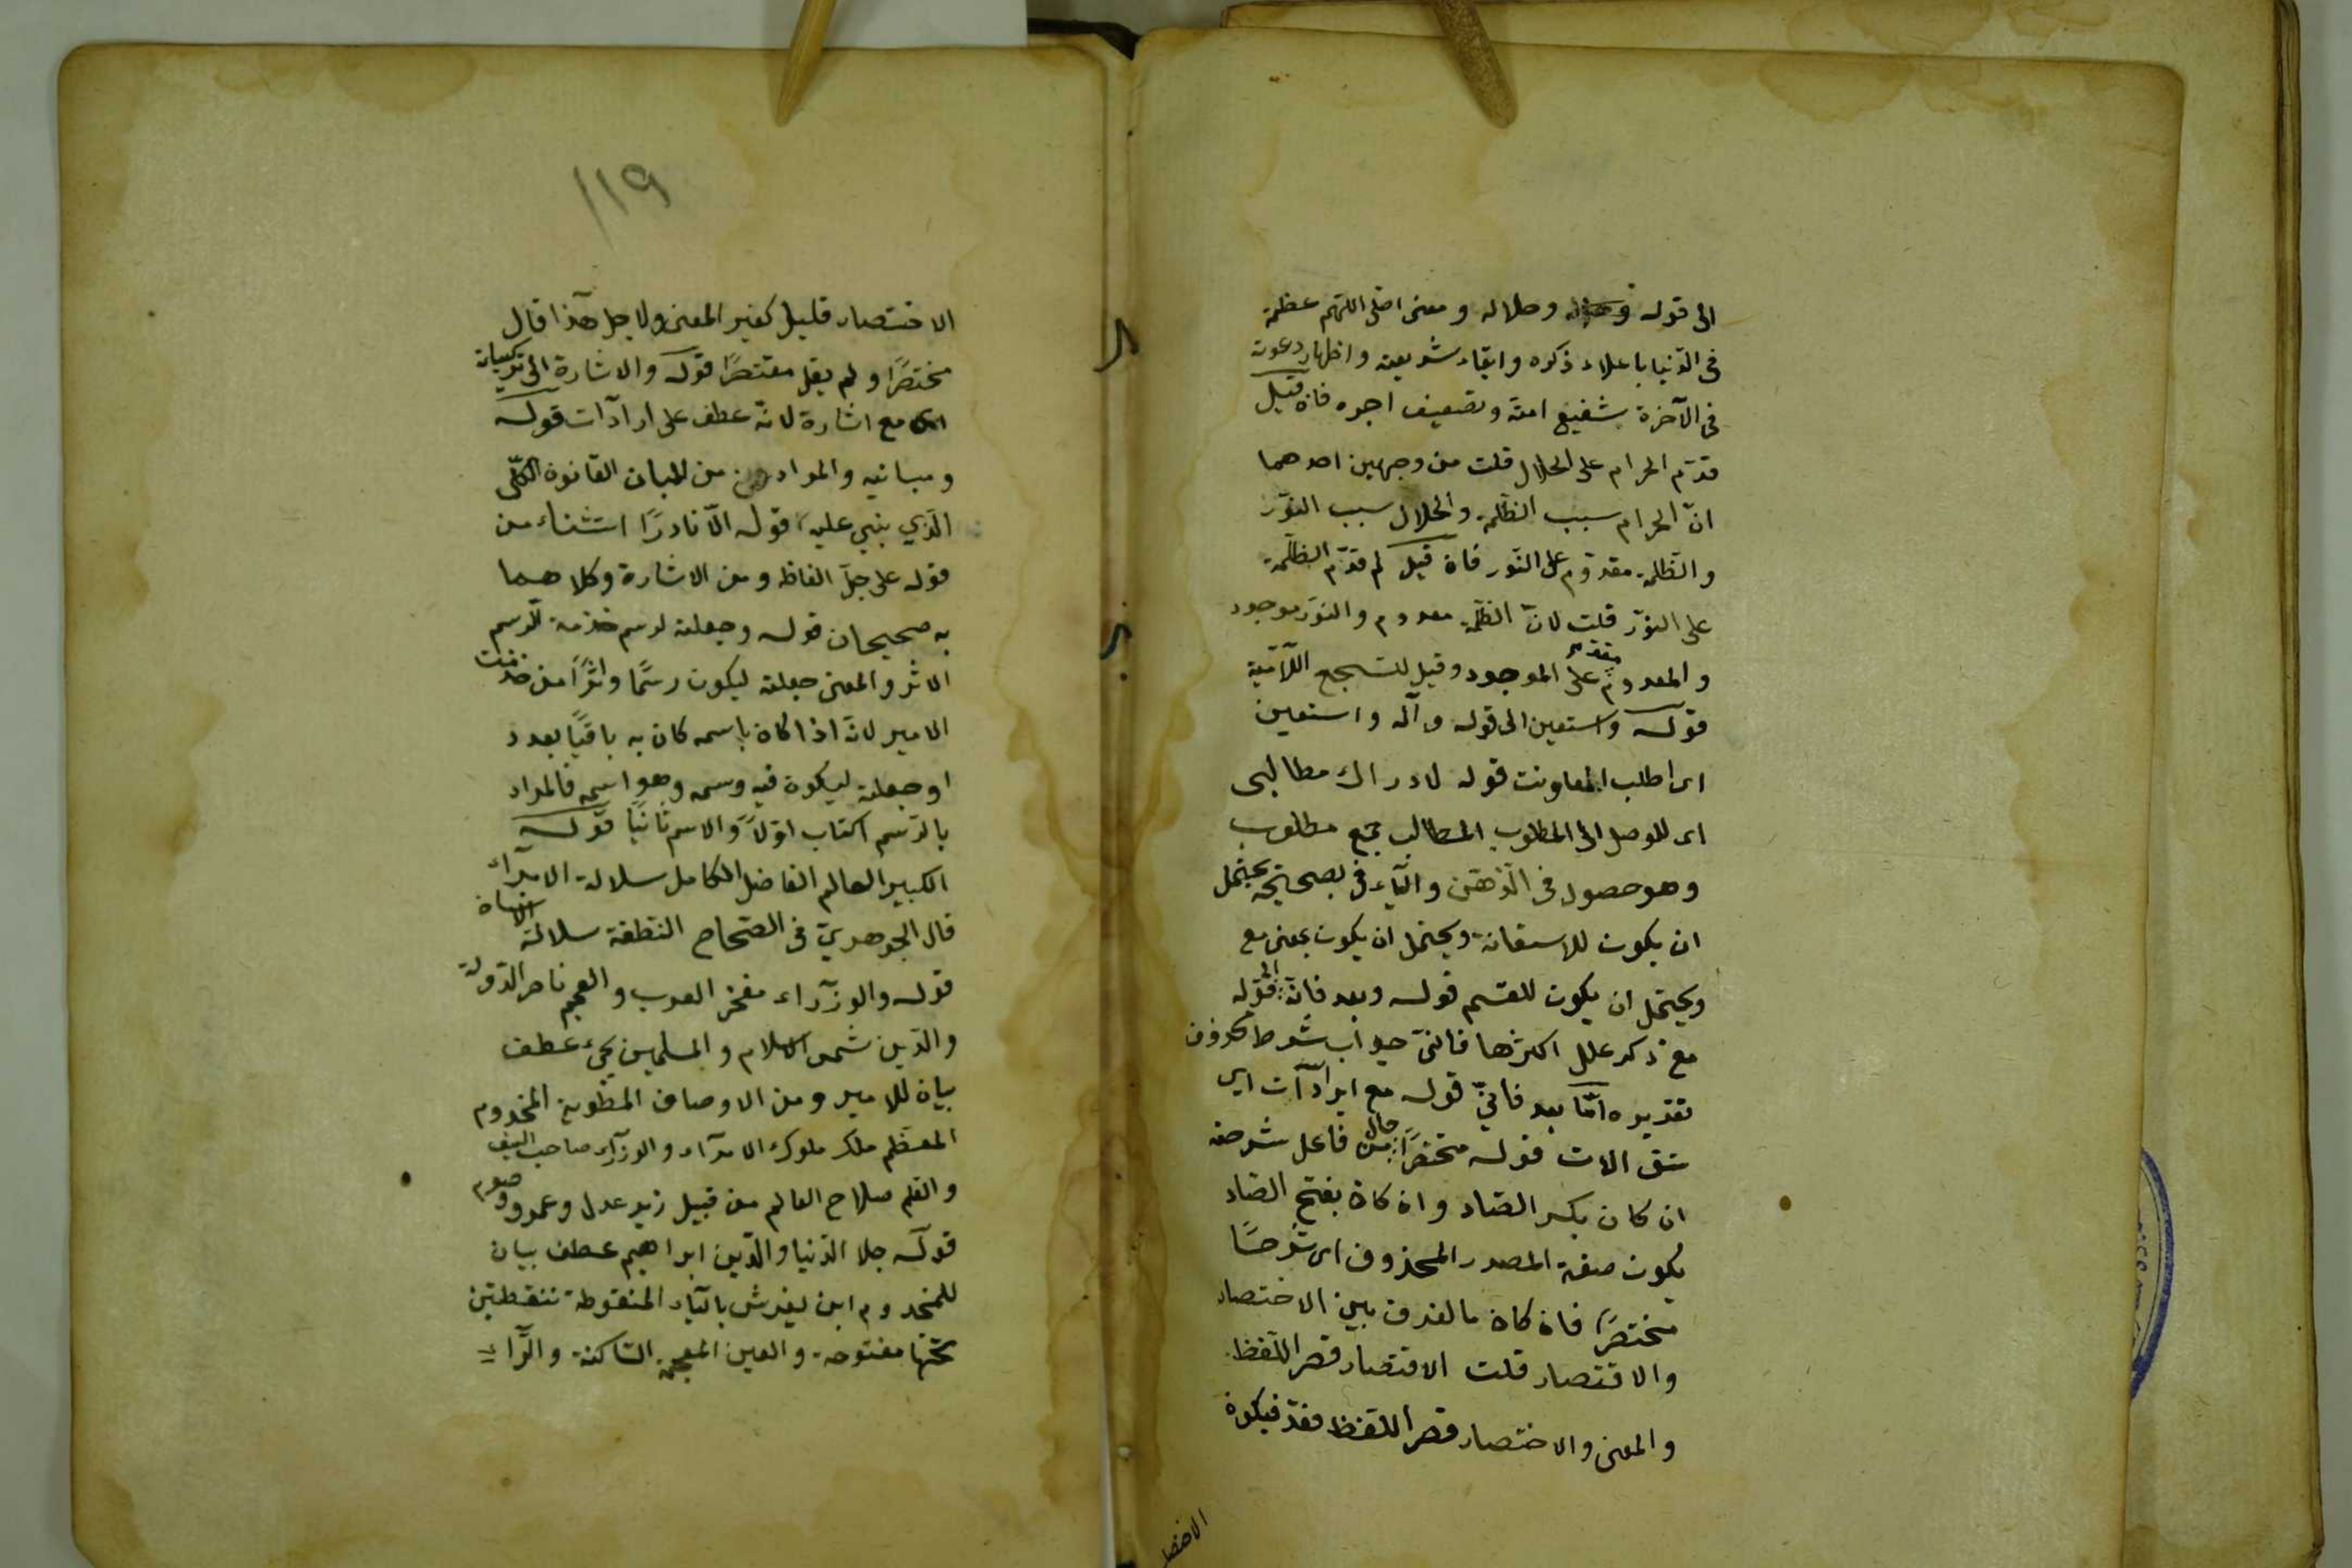 الى قوله وحلاله ومعنى اصلى اللهم عظمه
فى الدنيا باعلاء ذكره وابقاء شريعته واظهار دعوته
فى الآخرة بشفيع امته وتضعيف اجره فان قيل
قدّم الحرام على الحلال قلت من وجهين احدهما
انّ الحرام سبب الظلمة والحلال سبب النّور
والظّلمة مقدّم على النّور فان قيل لم قدّم الظلمة
على النّور قلت لانّ الظلمة معدوم والنّور موجود
والمعدوم مقدم على الموجود وقيل للتسجع اللآتية
قوله واستعين الى قوله وآله واستعين
اى اطلب المعاونت قوله لادراك مطالبى
اى للوصل الى المطلوب المطالب جمع مطلوب
وهو حصول فى الذهن والباء فى بصحتيحه يحتمل
ان يكون للاستعانة ويحتمل ان يكون بمعنى مع
ويحتمل ان يكون للقسم قوله وبعد فانّى الى قوله
مع ذكر علل اكثرها فانّى جواب شرط محذوف
تقديره امّا بعد فانّى قوله مع ايرادآت اى
قوله مختصرًا حال من فاعل شرحته
ان كان بكسر الصّاد وان كان بفتح الصّاد
يكون صفة المصدر المحذوف اى شرحًا
مختصرًا فان كان ما الفرق بين الاختصار
والاقتصار قلت الاقتصار قصر اللّفظ
والمعنى والاختصار قصر اللّفظ فقد فيكون
الاختصار
١١٩
الاختصار قليل كثير المعنى ولاجل هذا قال
مختصرًا ولم يقل مقتصرًا قوله والاشارة الى تركيباته
مع اشارة لانّه عطف على ارادآت قوله
ومبانيه والمراد من المبان القانون الكلّى
الّذي بنى عليه قوله الّا نادرًا استثناء من
قوله على جلّ الفاظه ومن الاشارة وكلاهما
به صحيحان قوله وجعلته لرسم خدمة الرسم
الاثر والمعنى جعلته ليكون رسمًا واثرًا من خدمت
الامير لانّه اذا كان باسمه كان به باقيًا بعده
او جعلته ليكون فيه وسمه وهو اسمه فالمراد
بالرّسم اكتاب اوّلاً والاسم ثانيًا قوله
الكبير العالم الفاضل الكامل سلالة الامرآء
قال الجوهريّ فى الصّحاح النّطفة سلالة الانسان
قوله والوزرآء مفخر العرب والعجم ناصر الدّولة
والدّين شمس الاسلام والمسلمين يحيى عطف
بيان للامير ومن الاوصاف المخدوم
المعظّم ملك ملوك الامرآء والوزرآء صاحب السيف
والقلم صلاح العالم من قبيل زيد عدل وعمرو وصوم
قوله جلا الدّنيا والدّين ابراهيم عطف بيان
للمخدوم ابن يغرش بالياء المنقوطة بنقطتين
تحتها مفتوحة والغين المعجمة السّاكنة والرّاء